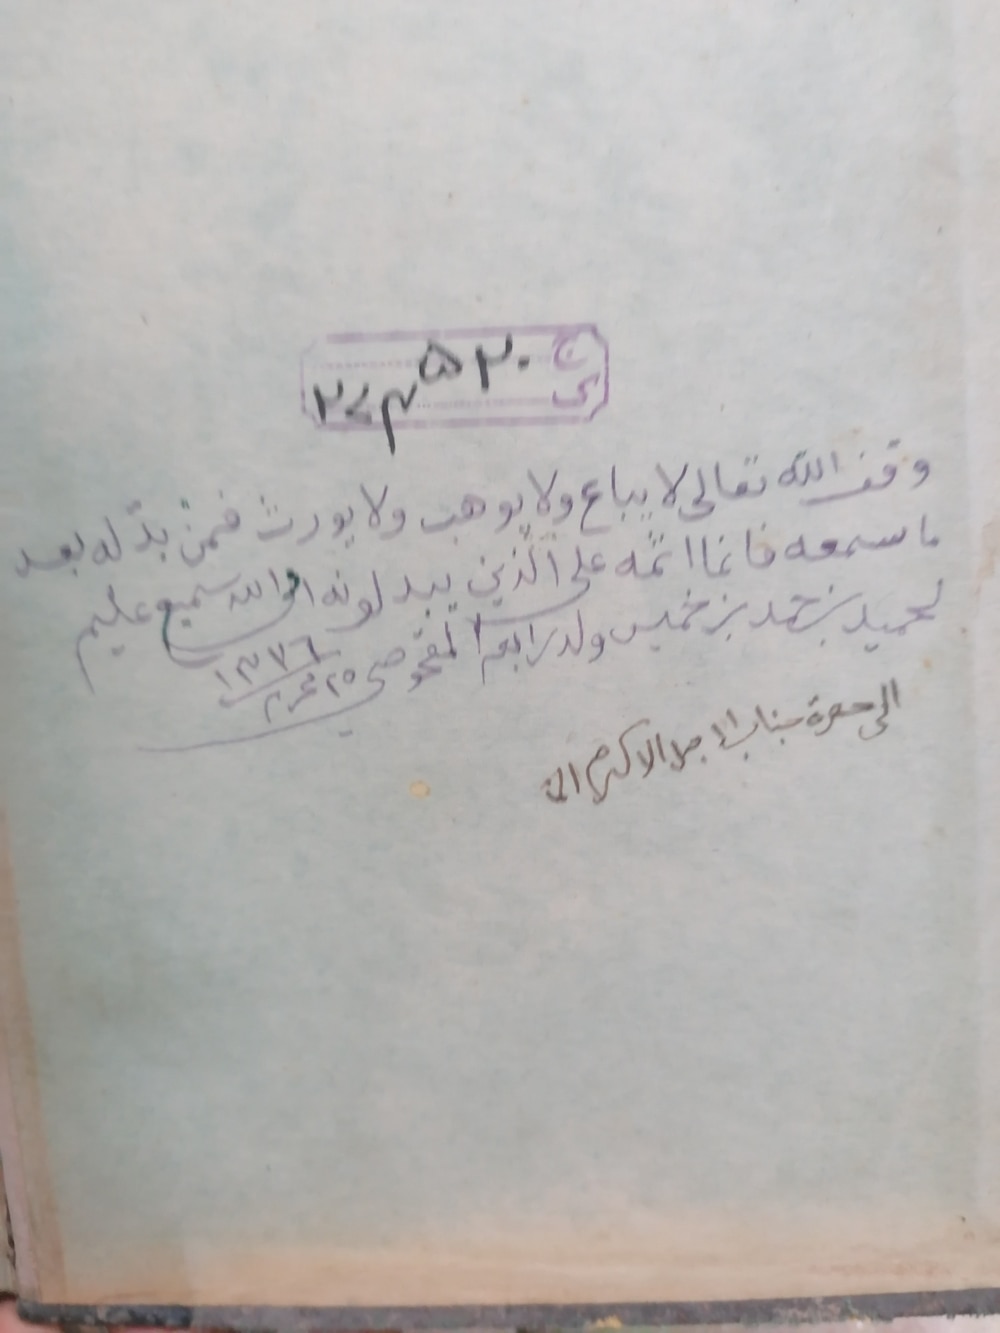 ج ٢٠ ٥
ى ٢٧٣
وقف الله تعالى لا يباع ولا يوهب ولا يورث فمن بدّله بعد
ما سمعه فانما اثمه على الذين يبدلونه ان الله سميع عليم
حميد بن حمد بن خميس ولد رابعه
٢٥ محرم ١٣٧٦
الى حضرة جناب الاجل الاكرم الاخ